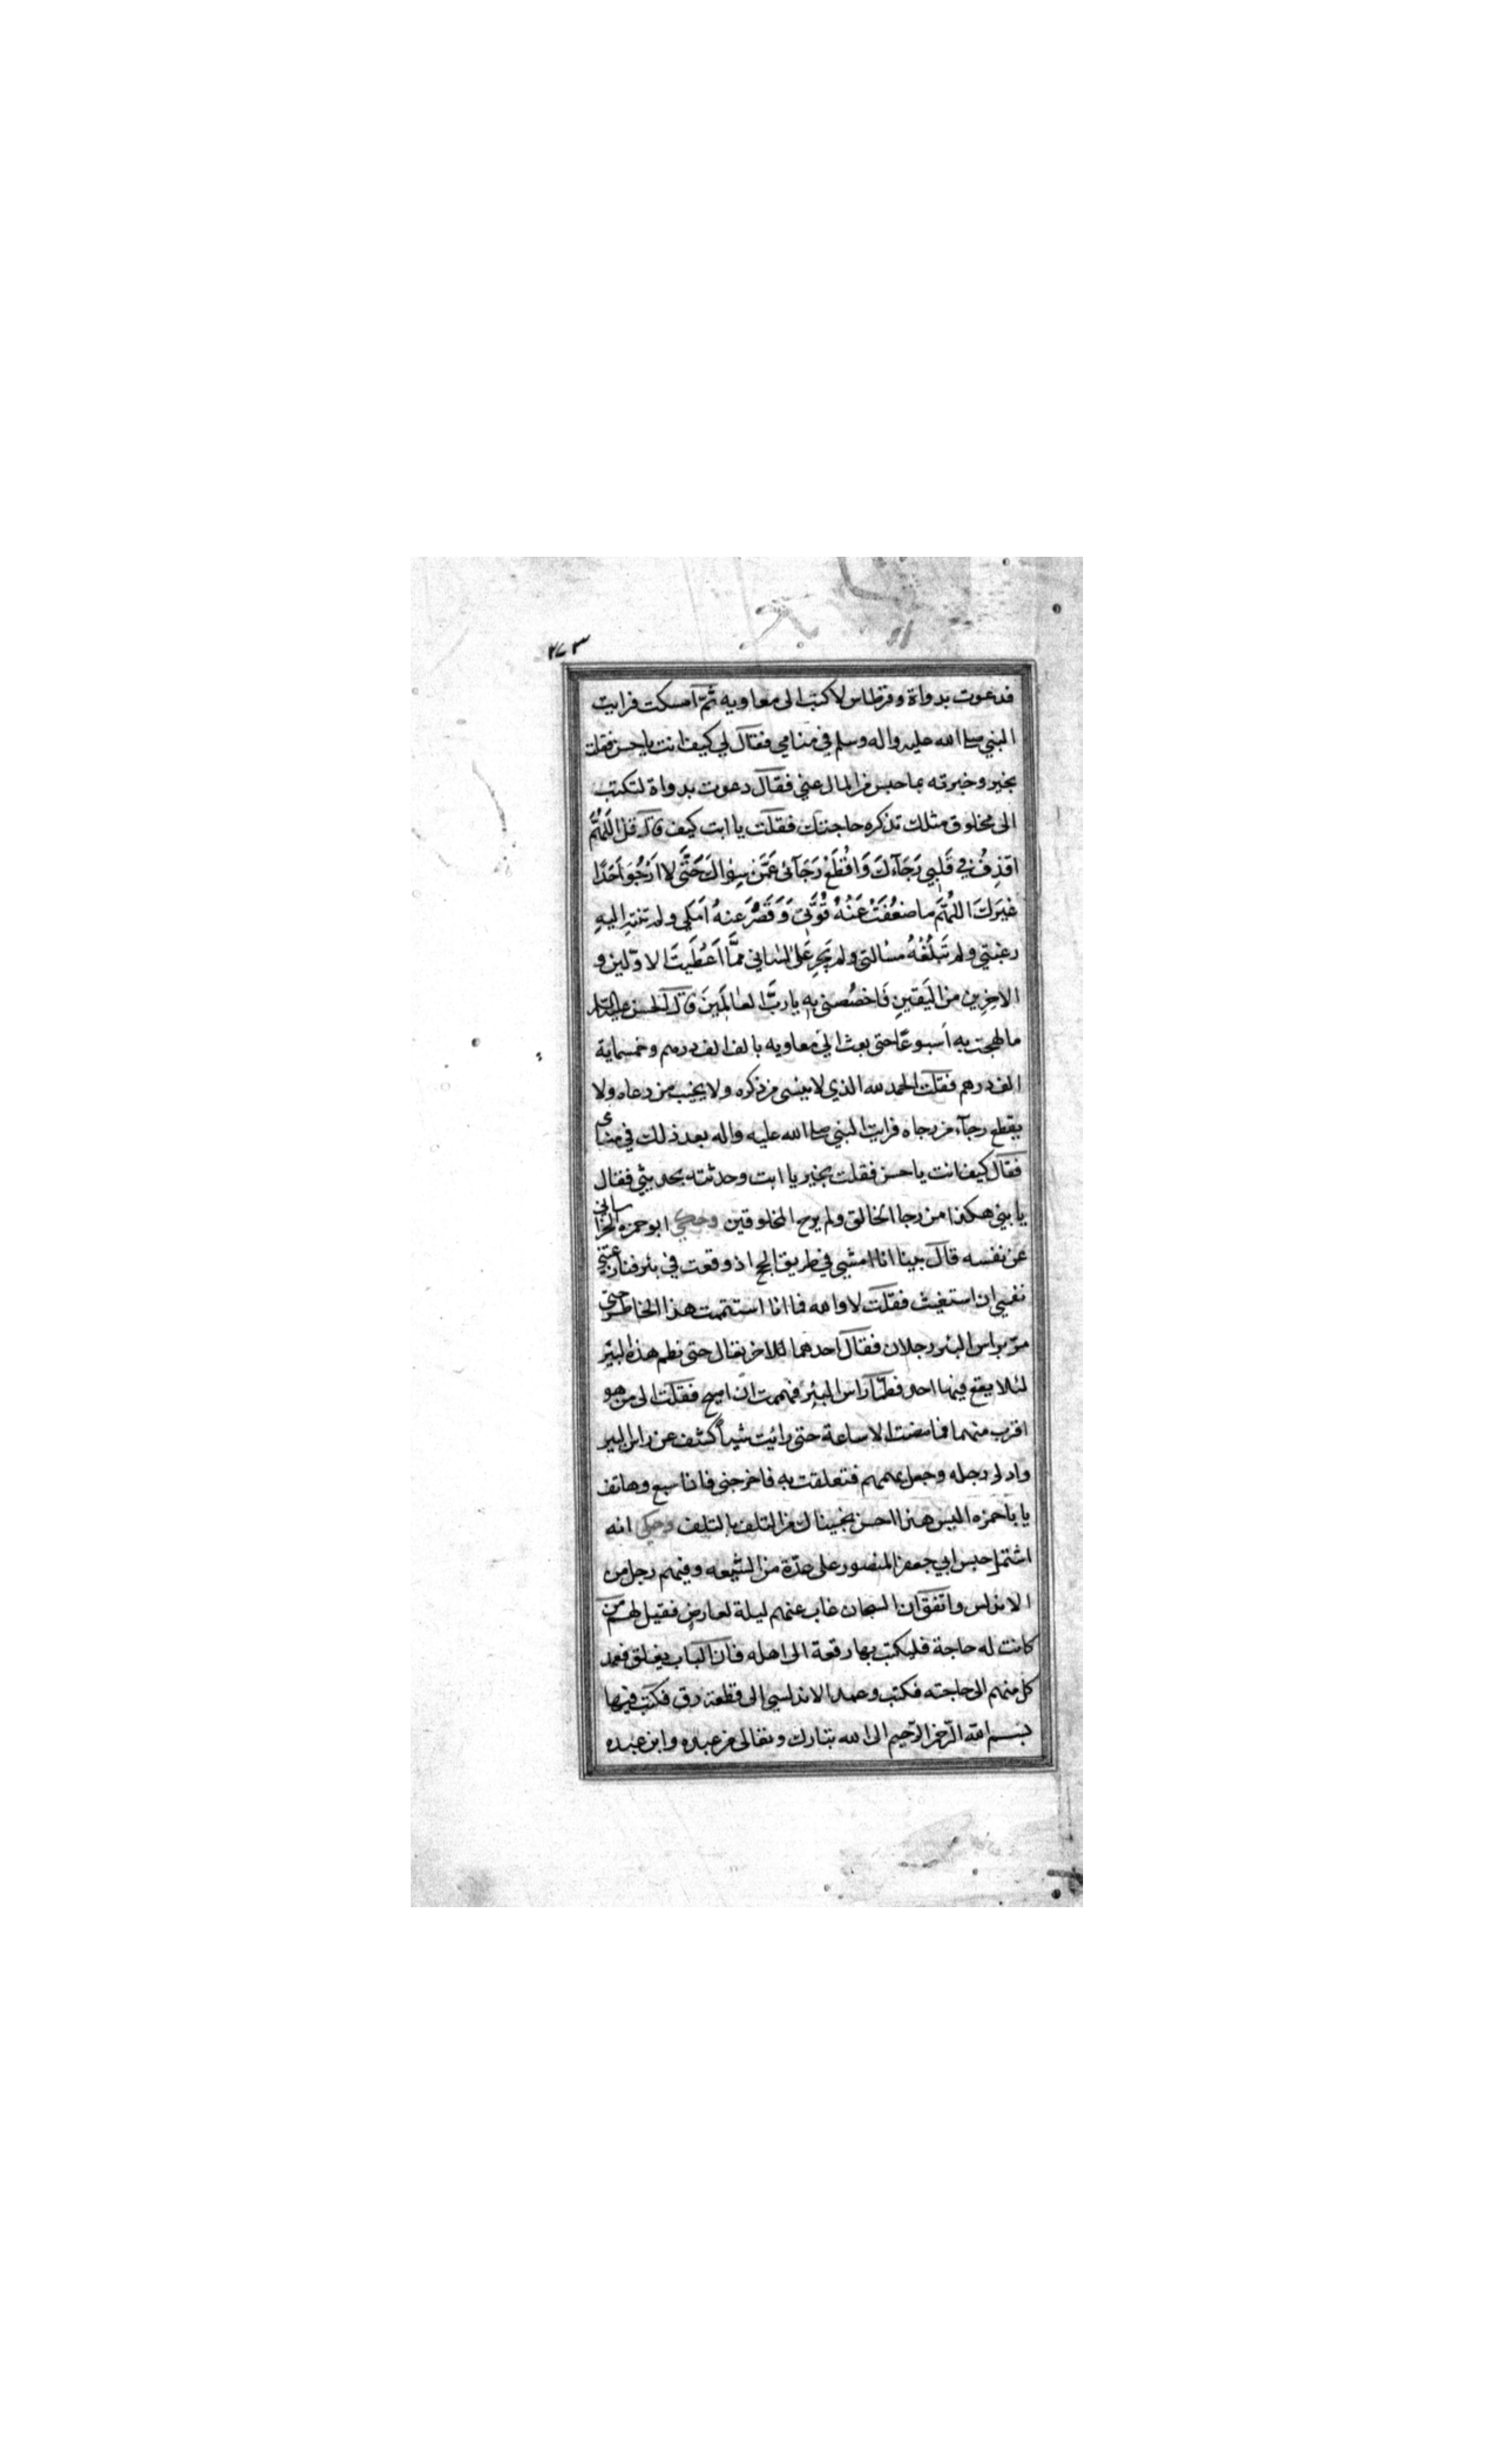 ٢٧٣
فدعوت بدواة وقرطاس لاكتب الى معاويه ثم امسكت فرايت
النبي صلى الله عليه واله وسلم في منامي فقال لي كيف انت يا حسن فقلت
بخير وخبرته بما حبس من المال عني فقال دعوت بدواة لتكتب
الى مخلوق مثلك تذكره حاجتك فقلت يا ابت كيف قال قل اللّهُمَّ
اقذِفْ في قَلبِي رَجَآءَكَ وَاقْطَعْ رَجَآئى عَمَّنْ سِوٰاكَ حَتّٰى لا اَرْجُوَ اَحَدًا
غَيرَكَ اللهُمَّ ما ضعُفَتْ عَنْهُ قُوَّتى وَقَصُرَ عنهُ اَمَلِى ولم تنتهِ اليهِ
رغبتي ولم تَبلُغْهُ مسالتي ولم يَجرِ عَلٰى لسٰانى مِمَّا اَعْطَيتَ الاوّلين و
الاخِرِين من اليَقينِ فَاخصُصنى بِه يا ربَّ العٰالَمِينَ قال الحسن عليه السلام
ما لهجت به اَسبوعًا حتى بعث الي معاويه بالف الف درهم وخمسماية
الف درهم فقلت الحمد لله الذي لا ينسى من ذكره ولا يخيب من دعاه ولا
يقطع رجآء من رجاه فرايت النبي صلى الله عليه واله بعد ذلك في منامى
فقال كيف انت يا حسن فقلت بخير يا ابت وحدثته بحديثي فقال
يا بني هكذا من رجا الخالق ولم يرج المخلوقين وحكي ابو حمزه الخراسانى
عن نفسه قال بينا انا امشي في طريق الحج اذ وقعت في بئر فنازعتني
نفسي ان استغيث فقلت لا والله فما انا استتممت هذا الخاطر حتى
مرّ براس البئر رجلان فقال احدهما للاخر تعال حتى نطم هذه البئر
لئلا يقع فيها احد فطمّا راس البئر فهممت ان اصيح فقلت الى من هو
اقرب منهما فما مضت الا ساعة حتى رائيت شيأ كشف عن راس البير
وادلى رجله وجعل يهمهم فتعلقت به فاخرجني فاذا سبع وهاتف
يا با حمزه اليس هذا احسن نجيناك من التلف بالتلف وحكى انه
اشتمل حبس ابي جعفر المنصور على عدّة من الشيعه وفيهم رجل من
الاندلس واتفق ان السجان غاب عنهم ليلة لعارض فقيل لهم من
كانت له حاجة فليكتب بها رقعة الى اهله فان الباب يغلق فعمد
كل منهم الى حاجته فكتب وعمد الاندلسي الى قطعة رق فكتب فيها
بسم الله الرّحمن الرّحيم الى الله تبارك وتعالى من عبده وابن عبده